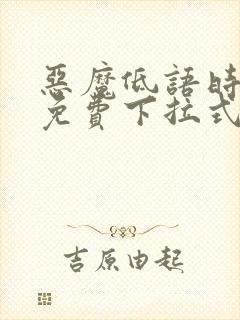 惡魔低語時
免費下拉式
吉原由起